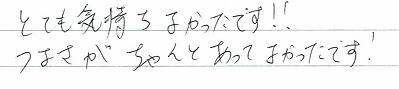 とても気持ちよかったです!!
つよさがちゃんとあってよかったです!